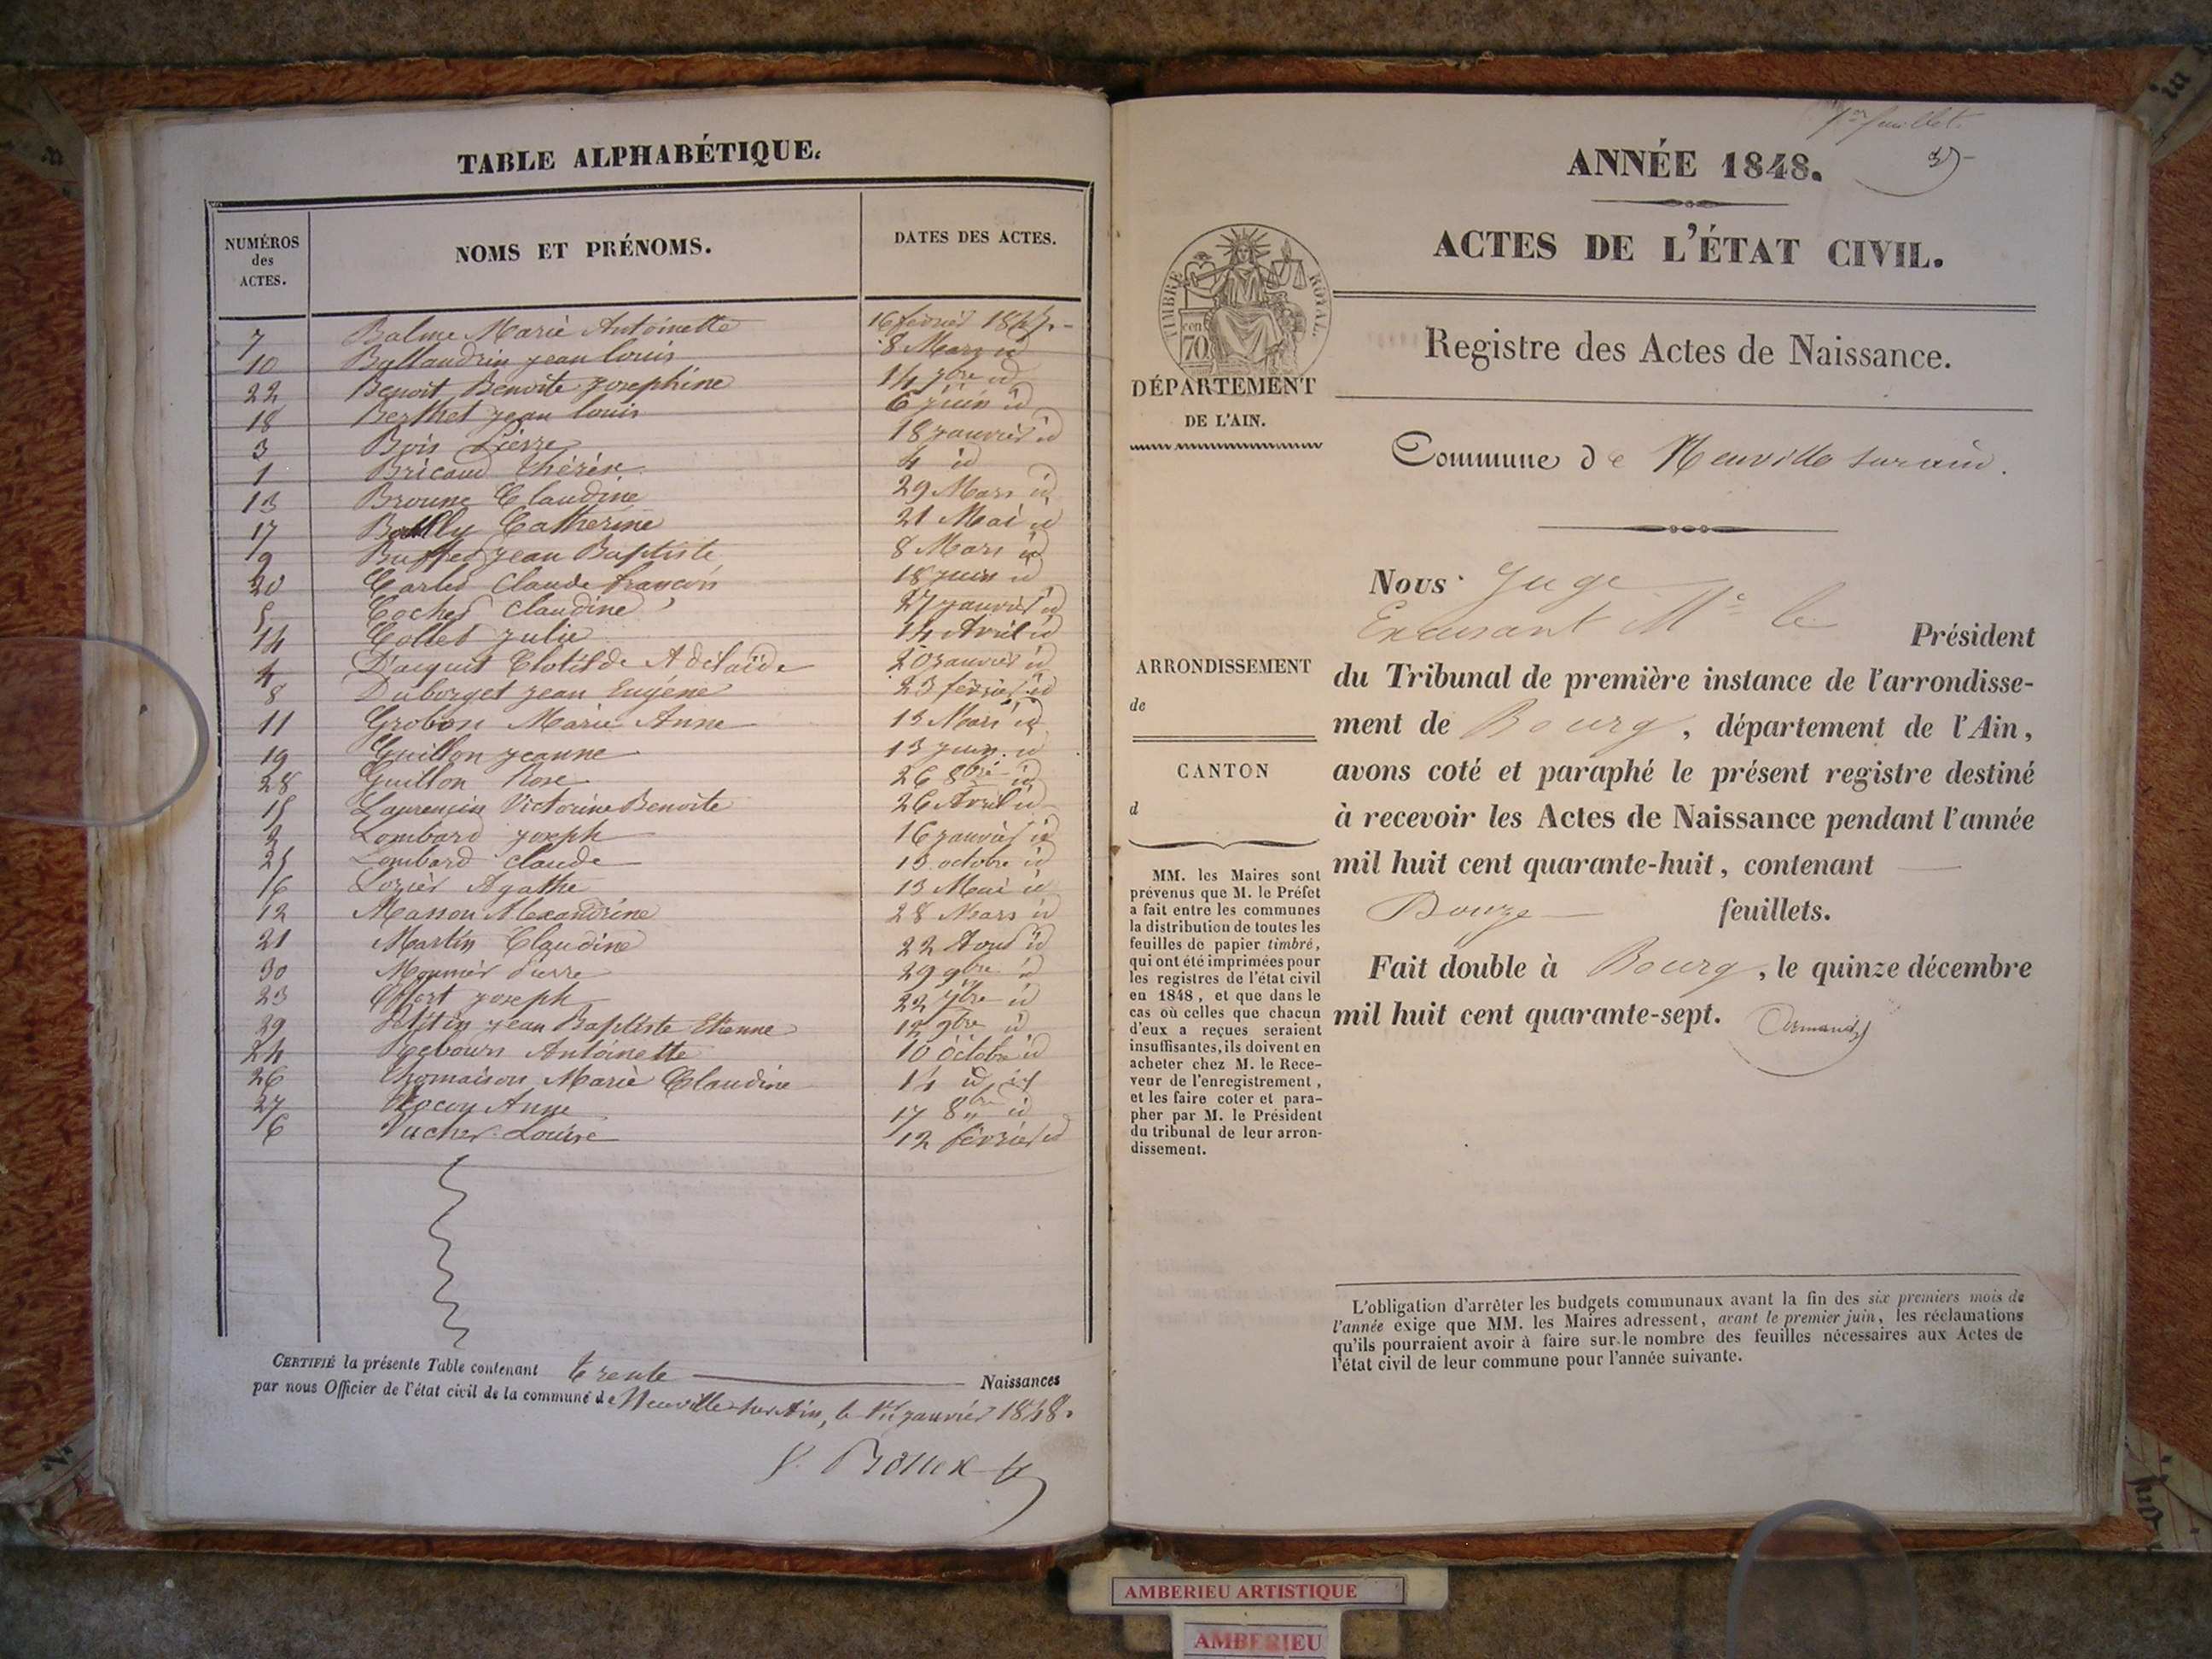 TABLE ALPHABÉTIQUE.
NUMÉROS
des
ACTES.
NOMS ET PRÉNOMS.
DATES DES ACTES.
7 Balme Marie Antoinette 16 février 1847.
10 Ballandrin jean louis 8 Mars id
22 Benoit Benoite josephine 14 7bre id
18 Berthet jean louis 6 juin id
3 Bois Pierre 18 janvier id
1 Bricaud thérèse 4 id
13 Broune Claudine 29 Mars id
17 Catherine 21 Mai id
9 Buffet jean Baptiste 8 Mars id
20 Carles Claude françois 18 juin id
5 Cochet Claudine 27 janvier id
14 Collet julie 14 Avril id
4 Clotilde Adélaïde 20 janvier id
8 Duborget jean Eugène 23 février id
11 Grobon Marie Anne 13 Mars id
19 Guillon jeanne 13 juin id
28 Guillon Rose 26 8bre id
15 Laurencin Victorine Benoite 26 Avril id
2 Lombard joseph 16 janvier id
25 Lombard Claude 13 octobre id
16 Agathe 13 Mai id
12 Masson Alexandrine 28 Mars id
21 Martin Claudine 22 Aout id
30 Monnier Pierre 29 9bre id
23 joseph 22 7bre id
29 jean Baptiste Etienne 12 9bre id
24 Antoinette 10 Octobre id
26 Thomaison Marie Claudine 14 id id
27 Anne 17 8bre id
6 Vucher Louise 12 février id
CERTIFIÉ la présente Table contenant trente Naissances
par nous Officier de l'état civil de la commune de Neuville sur Ain, le 1er janvier 1848.
1er feuillet.
ANNÉE 1848.
ACTES DE L'ÉTAT CIVIL.
TIMBRE ROYAL.
cen
70
Registre des Actes de Naissance.
DÉPARTEMENT
DE L'AIN.
Commune de Neuville sur ain.
Nous Juge
Mr le Président
ARRONDISSEMENT
de
CANTON
d
du Tribunal de première instance de l'arrondisse-
ment de Bourg, département de l'Ain,
avons coté et paraphé le présent registre destiné
à recevoir les Actes de Naissance pendant l'année
mil huit cent quarante-huit, contenant
Douze feuillets.
Fait double à Bourg, le quinze décembre
mil huit cent quarante-sept.
MM. les Maires sont
prévenus que M. le Préfet
a fait entre les communes
la distribution de toutes les
feuilles de papier timbré,
qui ont été imprimées pour
les registres de l'état civil
en 1848, et que dans le
cas où celles que chacun
d'eux a reçues seraient
insuffisantes, ils doivent en
acheter chez M. le Rece-
veur de l'enregistrement,
et les faire coter et para-
pher par M. le Président
du tribunal de leur arron-
dissement.
L'obligation d'arrêter les budgets communaux avant la fin des six premiers mois de
l'année exige que MM. les Maires adressent, avant le premier juin, les réclamations
qu'ils pourraient avoir à faire sur le nombre des feuilles nécessaires aux Actes de
l'état civil de leur commune pour l'année suivante.
AMBERIEU ARTISTIQUE
AMBERIEU